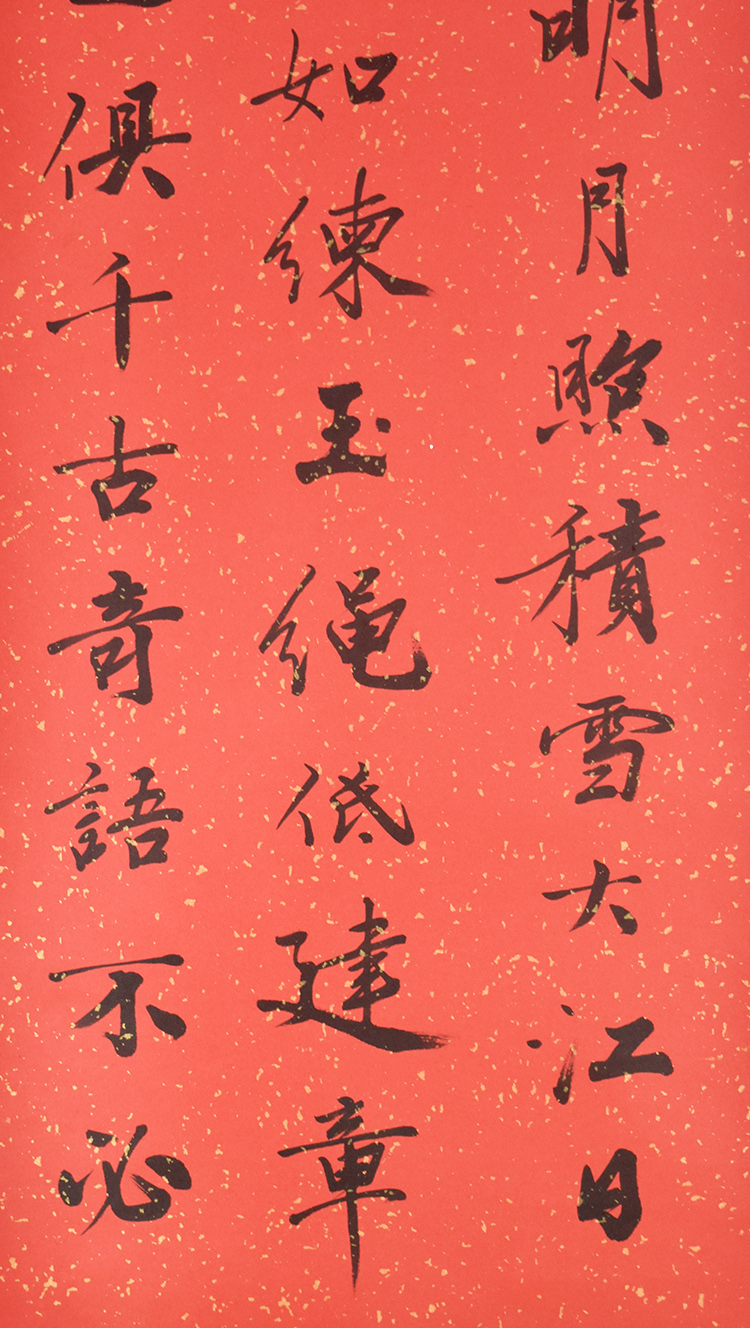 明月照積雪大江日
如練玉繩低建章
俱千古奇語不必